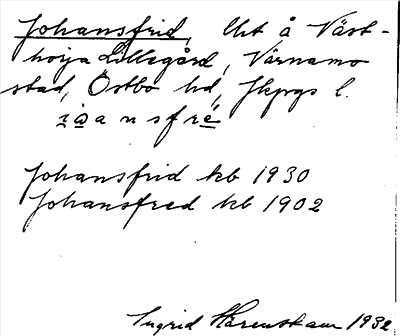 Johansfrid, lht å Väst-
horja Lillegård, Värnamo
stad, Östbo hd, Jkpgs l.
a n s f r é
Johansfrid kb 1930
Johansfred kb 1902
Ingrid 1932